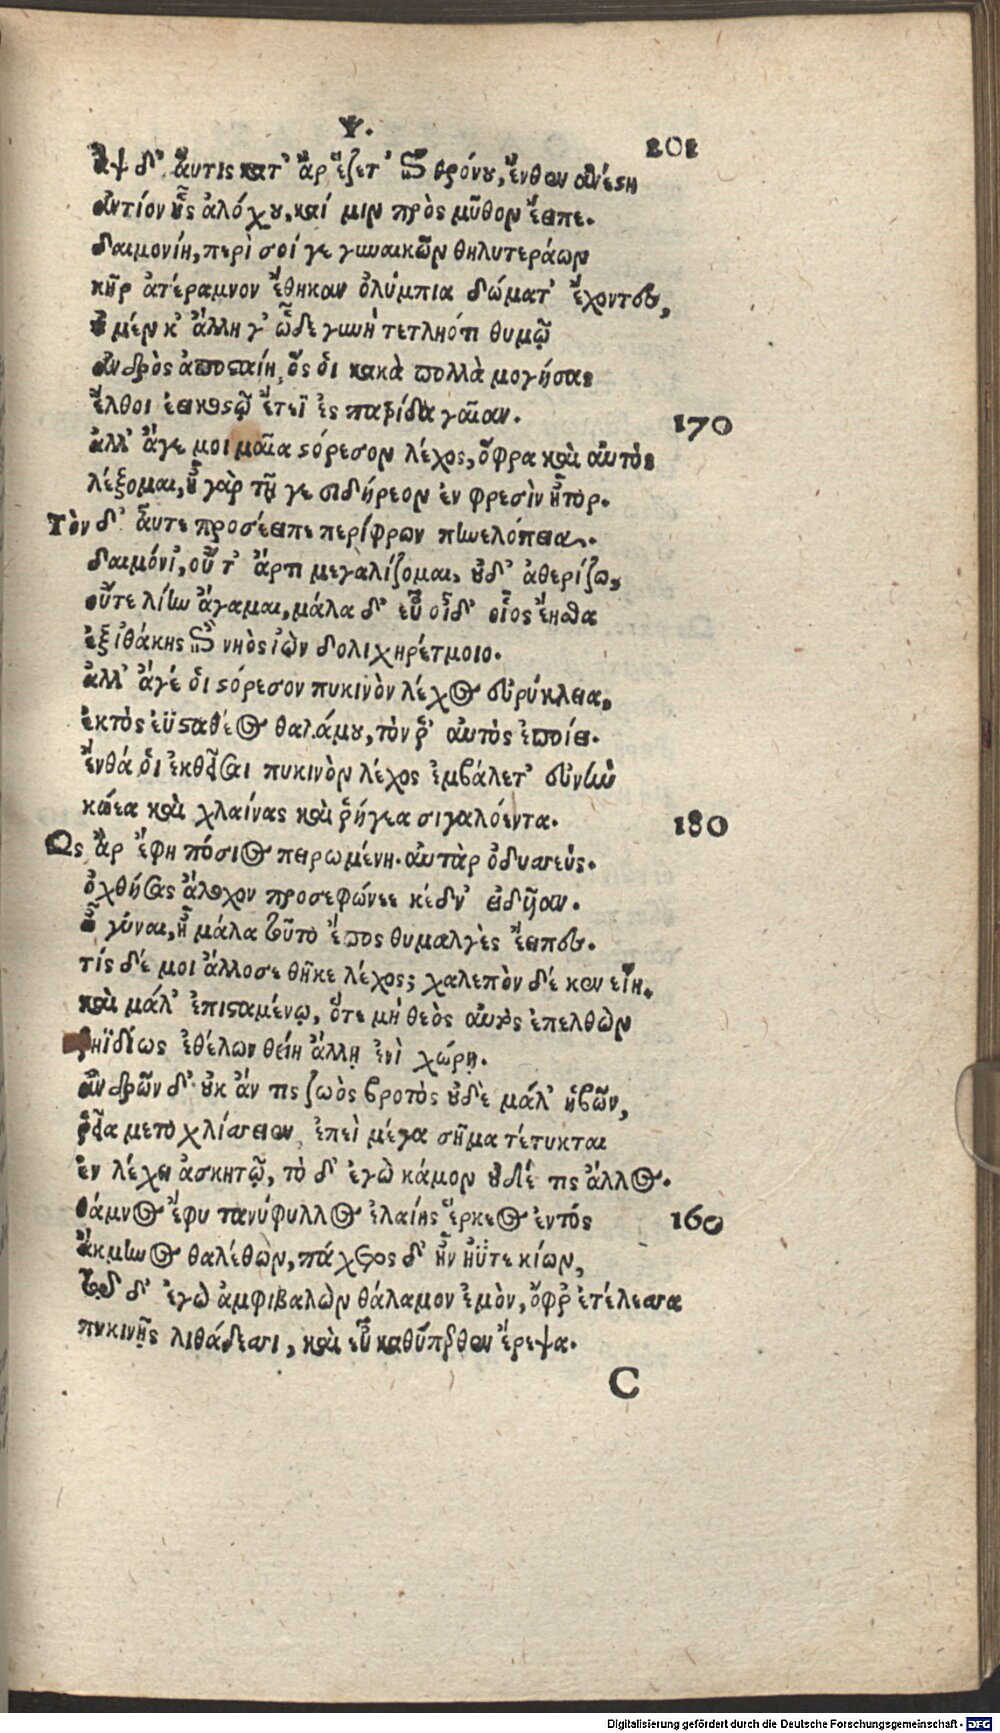 Ψ. 201
ἂψ δ' αὖτις κατ' ἄρ ἕζετ' ἐπὶ θρόνου, ἔνθεν ἀνέστη
ἀντίον ἧς ἀλόχου, καί μιν πρὸς μῦθον ἔειπε.
δαιμονίη, περὶ σοί γε γυναικῶν θηλυτεράων
κῆρ ἀτέραμνον ἔθηκαν ὀλύμπια δώματ' ἔχοντες,
οὐ μέν κ' ἄλλη γ' ὧδε γυνὴ τετληότι θυμῷ
ἀνδρὸς ἀποσταίη, ὅς ὁι κακὰ πολλὰ μογήσας
ἔλθοι ἐεικοστῷ ἔτεϊ ἐς πατρίδα γαῖαν. 170
ἀλλ' ἄγε μοι μαῖα στόρεσον λέχος, ὄφρα καὶ αὐτὸς
λέξομαι, ἦ γὰρ τῇ γε σιδήρεον ἐν φρεσὶν ἦτορ.
Τὸν δ' αὖτε προσέειπε περίφρων πηνελόπεια.
δαιμόνι', οὔ τ' ἄρτι μεγαλίζομαι, οὐδ' ἀθερίζω,
οὔτε λίην ἄγαμαι, μάλα δ' εὖ οἶδ' οἷος ἔησθα
ἐξ ἰθάκης ἐπὶ νηὸς ἰὼν δολιχηρέτμοιο.
ἀλλ' ἄγέ ὁι στόρεσον πυκινὸν λέχος εὐρύκλεια,
ἐκτὸς ἐϋσταθέος θαλάμου, τόν ῥ' αὐτὸς ἐποίει.
ἔνθά ὁι ἐκθεῖσαι πυκινὸν λέχος ἐμβάλετ' εὐνὴν
κώεα καὶ χλαίνας καὶ ῥήγεα σιγαλόεντα. 180
Ὣς ἄρ ἔφη πόσιος πειρωμένη. αὐτὰρ ὀδυσσεύς.
ὀχθήσας ἄλοχον προσεφώνεε κέδν' εἰδυῖαν.
ὦ γύναι, ἦ μάλα τοῦτο ἔπος θυμαλγὲς ἔειπες.
τίς δέ μοι ἄλλοσε θῆκε λέχος; χαλεπὸν δέ κεν εἴη.
καὶ μάλ' ἐπισταμένῳ, ὅτε μὴ θεὸς αὐτὸς ἐπελθὼν
ῥηϊδίως ἐθέλων θείη ἄλλῃ ἐνὶ χώρῃ.
ἀνδρῶν δ' οὐκ ἄν τις ζωὸς βροτὸς οὐδὲ μάλ' ἡβῶν,
ῥεῖα μετοχλίσσειεν, ἐπεὶ μέγα σῆμα τέτυκται
ἐν λέχει ἀσκητῷ, τὸ δ' ἐγὼ κάμον οὐδέ τις ἄλλος.
θάμνος ἔφυ τανύφυλλος ἐλαίης ἕρκεος ἐντός 160
ἀκμηνος θαλέθων, πάχετος δ' ἦν ἠΰτε κίων,
τῷ δ' ἐγὼ ἀμφιβαλὼν θάλαμον ἐμὸν, ὄφρ' ἐτέλεσσα
πυκινῇς λιθάδεσσι, καὶ εὖ καθύπερθεν ἔρεψα.
C
Digitalisierung gefördert durch die Deutsche Forschungsgemeinschaft - DFG